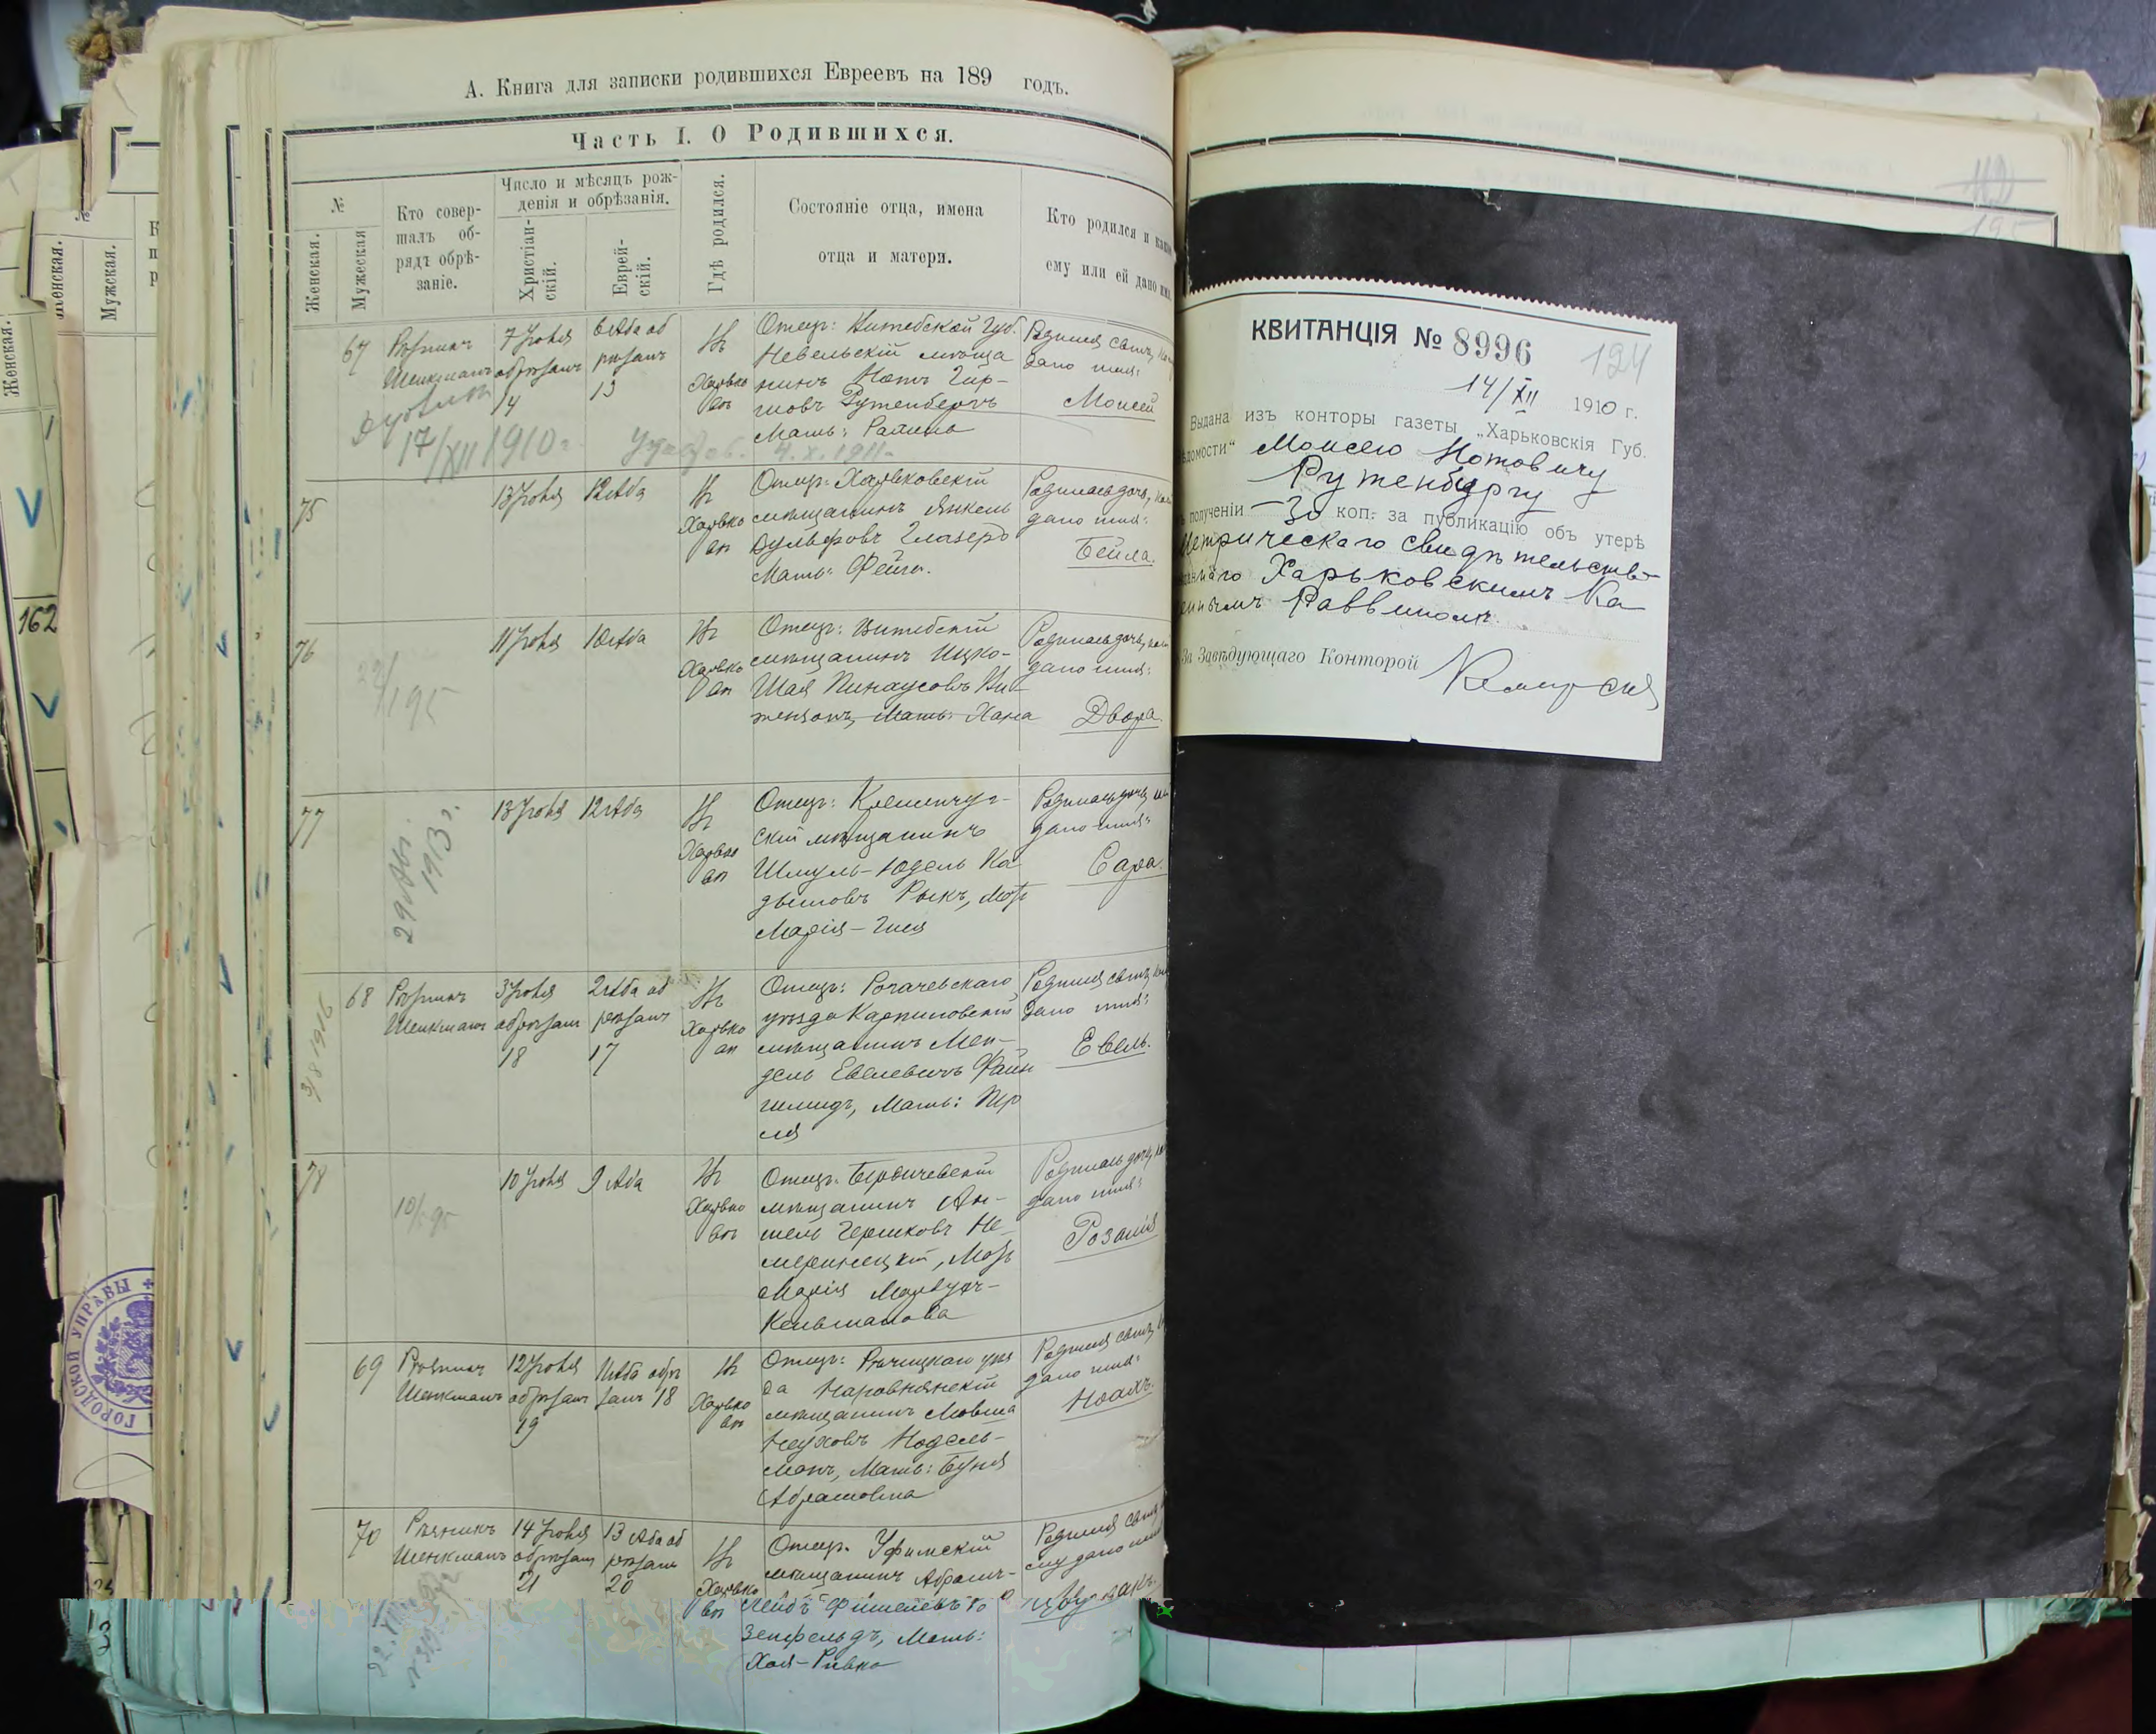 А. Книга для записки родившихся Евреевъ на 189 годъ.
Часть I. О Родившихся.
№
Женская.
Мужеская
Кто совер-
шалъ об-
рядъ обрѣ-
заніе.
Число и мѣсяцъ рож-
денія и обрѣзанія.
Христіан-
скій.
Еврей-
скій.
Гдѣ родился.
Состояніе отца, имена
отца и матери.
Кто родился и како
ему или ей дано имя.
67
Рѣзникъ
Шенкманъ
7 Іюля
обрѣзанъ
14
6 Аба об
рѣзанъ
13
Въ
Харько
вѣ
Отецъ: Витебской Губ.
Невельскій мѣща
нинъ Нотъ Гир-
шовъ Рутенбергъ
Мать:
Родился сынъ,
дано имя:
Моисей
17/XII 1910 г.
4.X.1911
75
13 Іюля
12 Аба
Въ
Харько
вѣ
Отецъ: Харьковскій
мѣщанинъ Янкель
Вульфовъ Глазеръ
Мать: Фейга.
Родилась дочь,
дано имя:
Бейла.
76
11 Іюля
10 Аба
Въ
Харько
вѣ
Отецъ: Витебскій
мѣщанинъ Ицко-
Шая Пинхусовъ Ви-
тензонъ, Мать: Хана
Родилась дочь,
дано имя:
Двора.
77
29 Авг.
1913 г.
13 Іюля
12 Аба
Въ
Харько
вѣ
Отецъ: Кременчуг-
скій мѣщанинъ
Шмуль-Юдель Ка
дышовъ Рыкъ, Мать
Марія-Гися
Родилась дочь,
дано имя:
Сара.
3/8 1916
68
Рѣзникъ
Шенкманъ
3 Іюля
обрѣзанъ
18
2 Аба об
рѣзанъ
17
Въ
Харько
вѣ
Отецъ: Рогачевскаго
уѣзда Карпиловскій
мѣщанинъ Мен-
дель Евелевичъ Файн
Мать: Пер
ля
Родился сынъ,
дано имя:
Евель.
78
10 Іюля
9 Аба
Въ
Харько
вѣ
Отецъ: Бердичевскій
мѣщанинъ Ан-
шель Гершковъ Не-
меринецкій, Мать
Марія
Родилась дочь,
дано имя:
Розалія
69
Рѣзникъ
Шенкманъ
12 Іюля
обрѣзанъ
19
11 Аба обрѣ
занъ 18
Въ
Харько
вѣ
Отецъ: Рѣчицкаго уѣз
да Наровлянскій
мѣщанинъ Мовша
Неуховъ Нодель-
манъ, Мать: Буня
Абрамовна
Родился сынъ,
дано имя:
Ноахъ.
70
Рѣзникъ
Шенкманъ
14 Іюля
обрѣзанъ
21
13 Аба об
рѣзанъ
20
Въ
Харько
вѣ
Отецъ: Уфимскій
мѣщанинъ Абрамъ-
Лейбъ Фишелевъ Ро
зенфельдъ, Мать:
Хая-Ривка
Родился сынъ
ему дано имя
КВИТАНЦІЯ № 8996
124
14/XII 1910 г.
Выдана изъ конторы газеты „Харьковскія Губ.
ѣдомости“ Моисею Нотовичу
Рутенбергу
ъ полученіи 30 коп. за публикацію объ утерѣ
Метрическаго свидѣтельства
аннаго Харьковскимъ Ка
еннымъ Раввиномъ.
За Завѣдующаго Конторой
Женская.
Мужская.
Женская.
162
ГОРОДСКОЙ УПРАВЫ